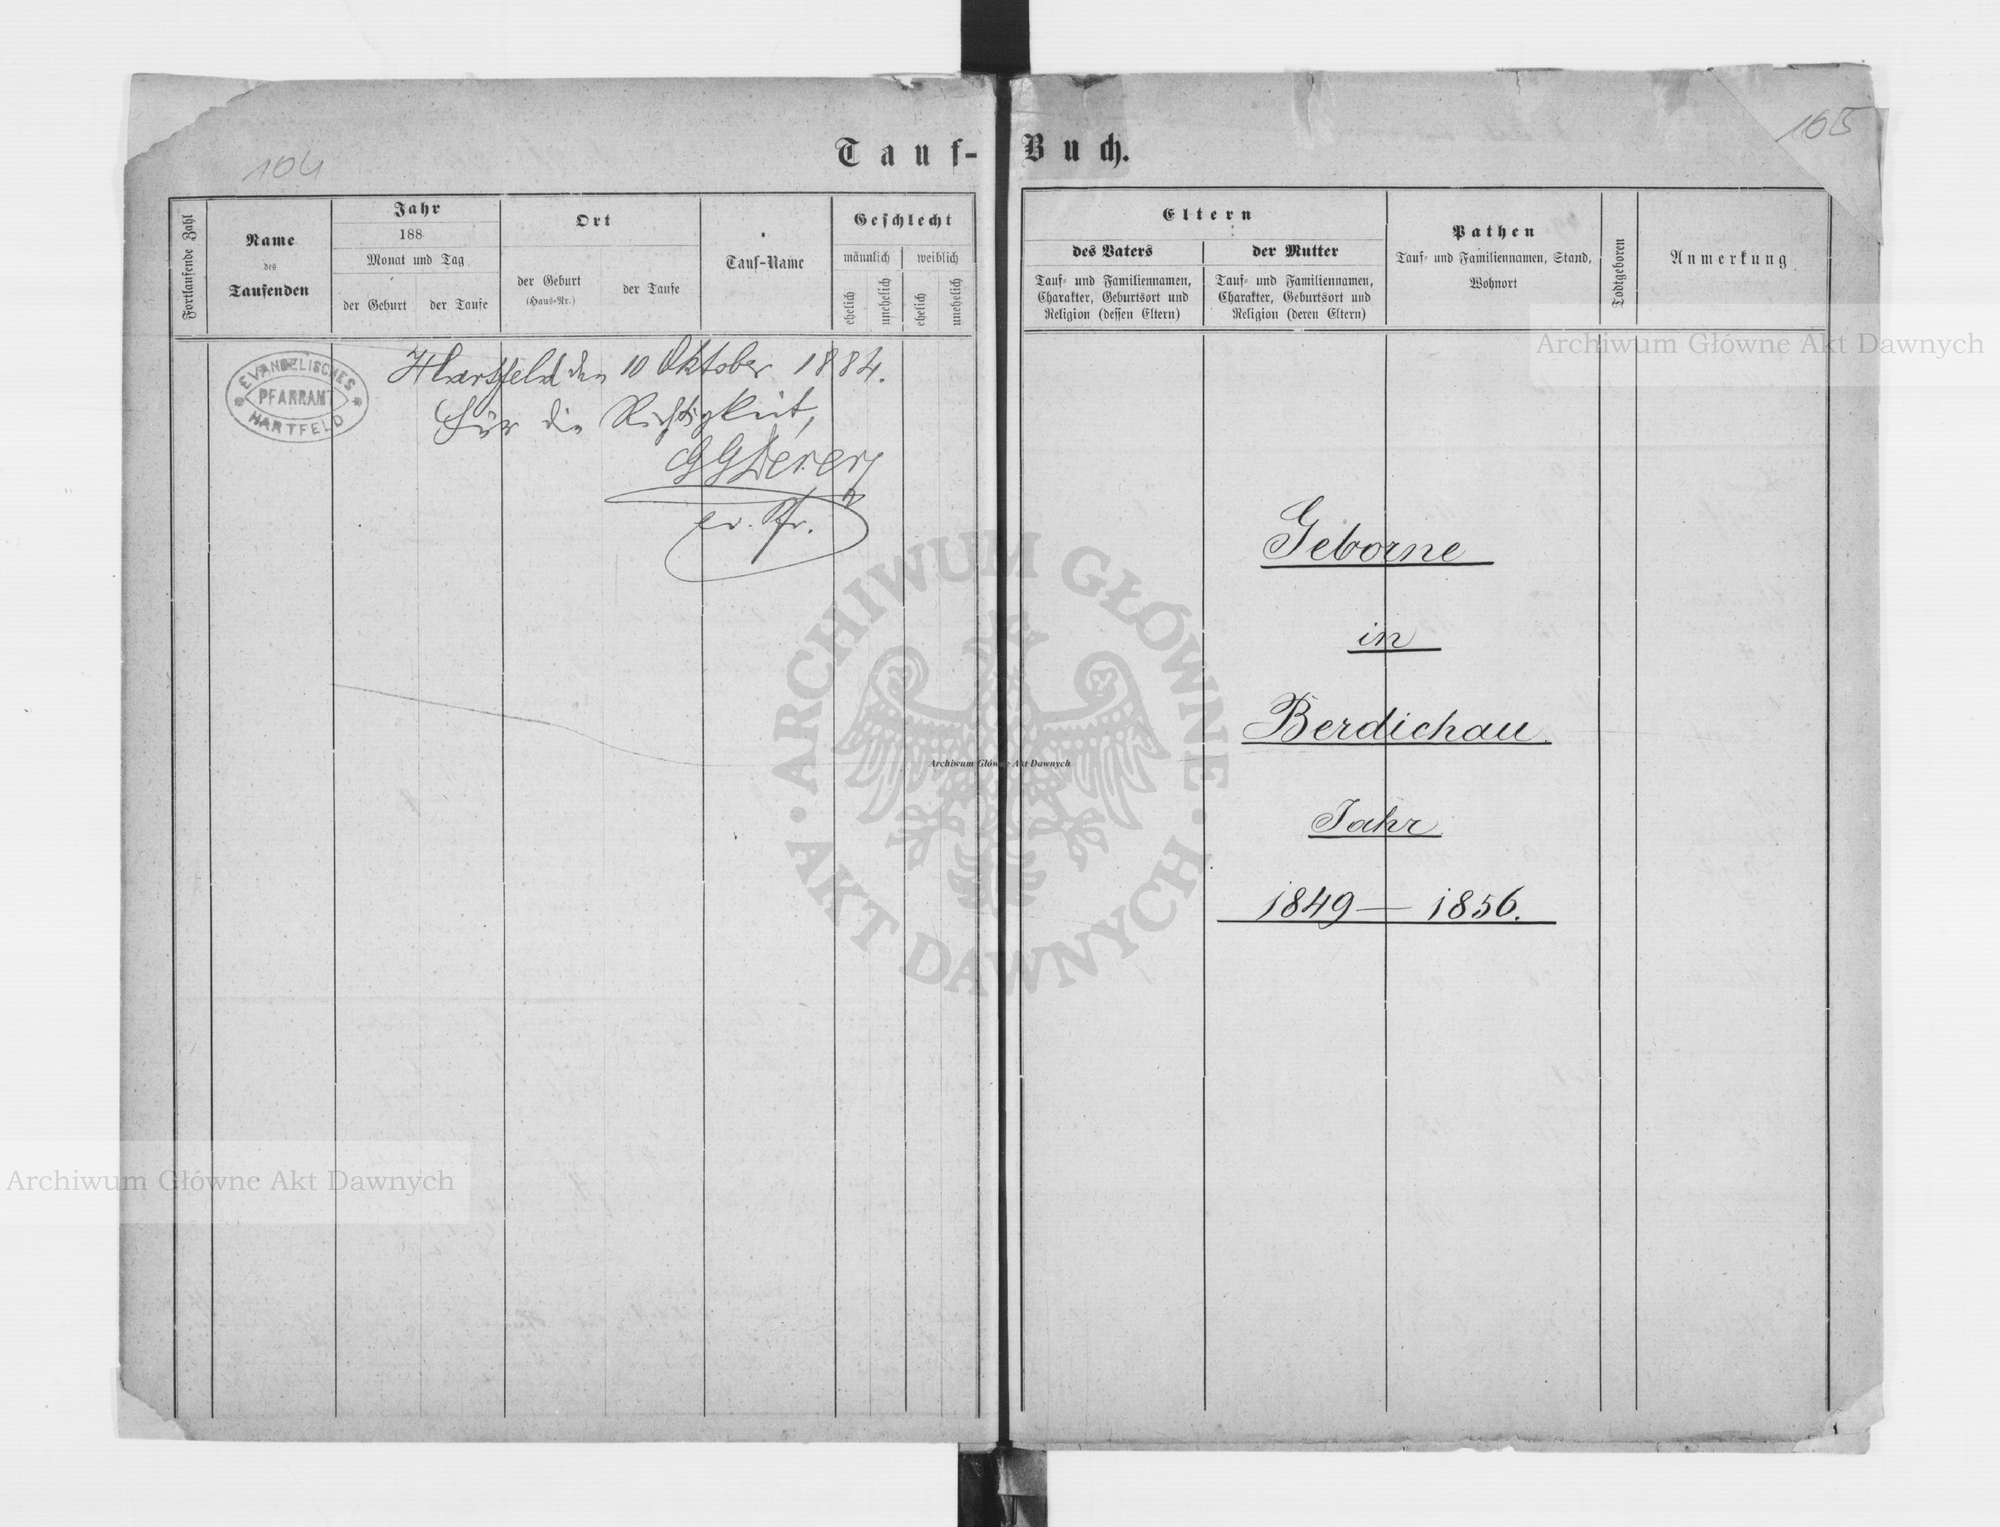 104
Tauf-
Fortlaufende Zahl
Name
des
Taufenden
Jahr
188
Monat und Tag
der Geburt
der Taufe
Ort
der Geburt
(Haus-Nr.)
der Taufe
Tauf-Name
Geschlecht
männlich
weiblich
ehelich
unehelich
ehelich
unehelich
EVANGELISCHES
PFARRAMT
HARTFELD
Hartfeld den 10 Oktober 1884.
Für die Richtigkeit,
ev. Pfr.
105
Buch.
Eltern
des Vaters
Tauf- und Familiennamen,
Charakter, Geburtsort und
Religion (dessen Eltern)
der Mutter
Tauf- und Familiennamen,
Charakter, Geburtsort und
Religion (deren Eltern)
Pathen
Tauf- und Familiennamen, Stand,
Wohnort
Todtgeboren
Anmerkung
Geborne
in
Berdichau
Jahr
1849 — 1856.
Archiwum Główne Akt Dawnych
ARCHIWUM GŁÓWNE
AKT DAWNYCH
Archiwum Główne Akt Dawnych
Archiwum Główne Akt Dawnych